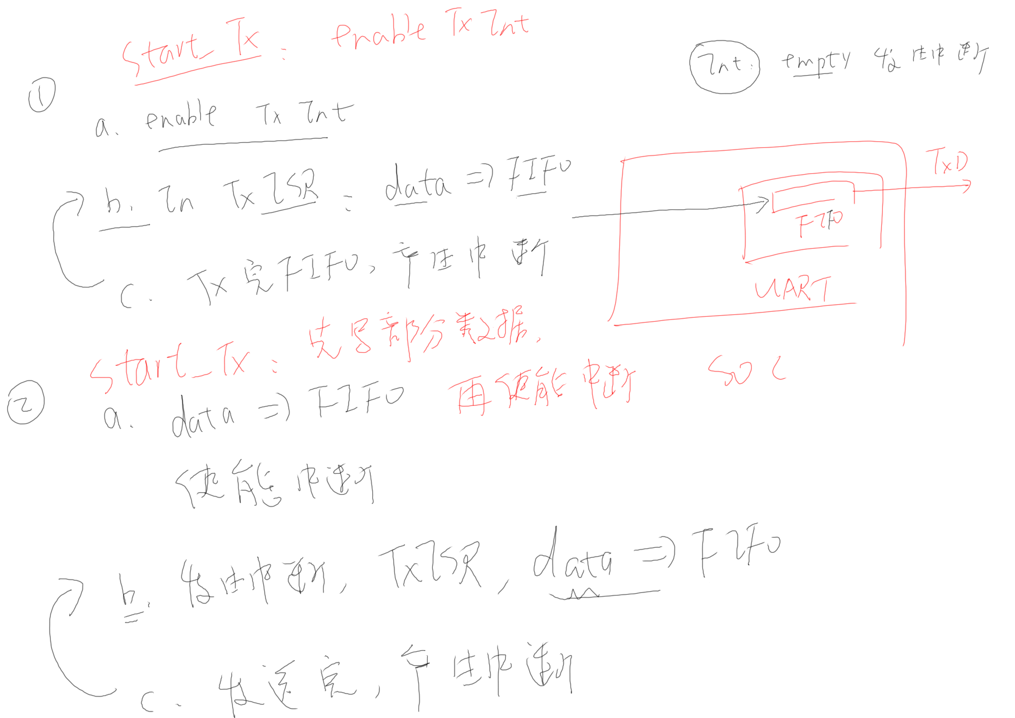 start_Tx: enable Tx Int
Int: empty 发生中断
①
a. enable Tx Int
b. In Tx ISR: data => FIFO
TxD
FIFO
c. Tx完FIFO, 产生中断
UART
start_Tx: 先写部分数据,
再使能中断
SOC
②
a. data => FIFO
使能中断
b. 发生中断, TxISR, data => FIFO
c. 发送完, 产生中断